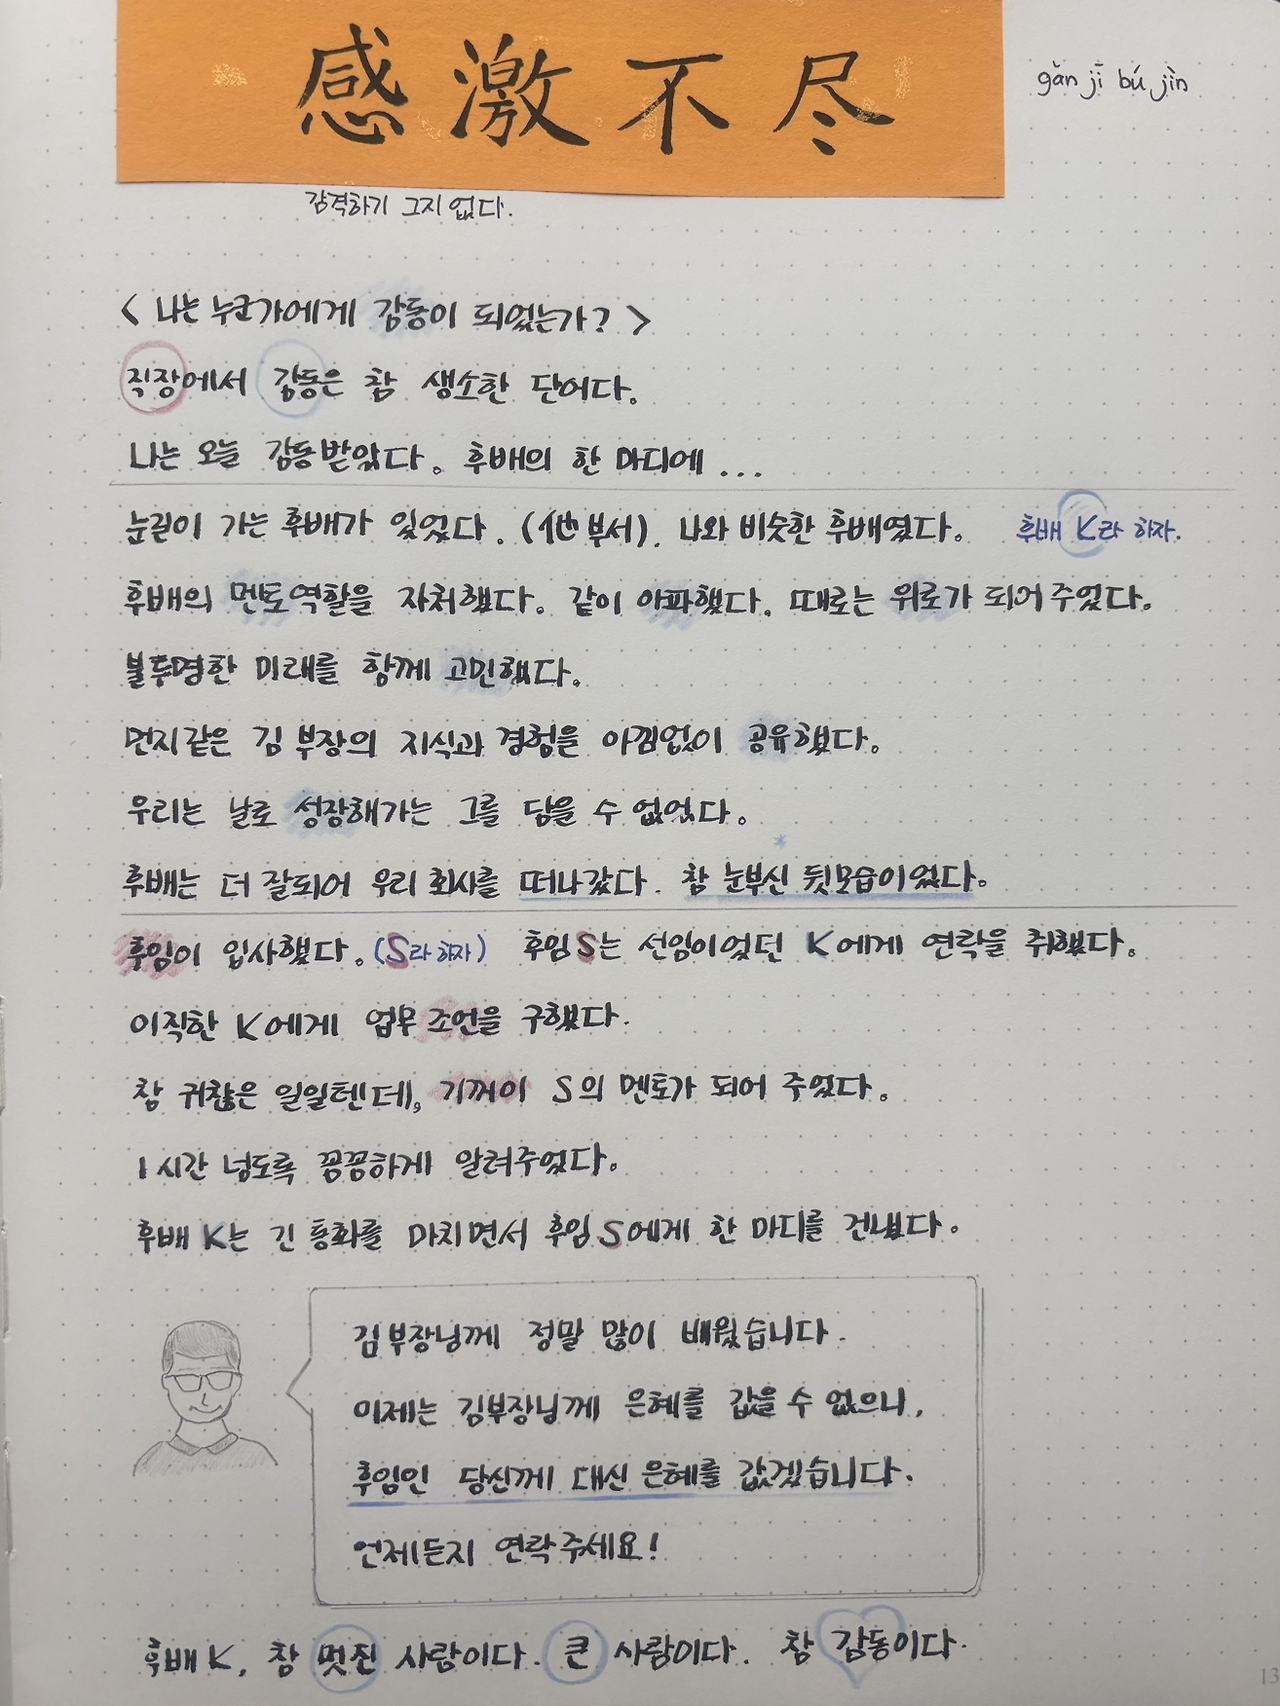 感激不尽
gǎn jī bú jìn
감격하기 그지 없다.
< 나는 누군가에게 감동이 되었는가? >
직장에서 감동은 참 생소한 단어다.
나는 오늘 감동받았다. 후배의 한 마디에 ...
눈길이 가는 후배가 있었다. (他 부서). 나와 비슷한 후배였다. 후배 K라 하자.
후배의 멘토역할을 자처했다. 같이 아파했다. 때로는 위로가 되어 주었다.
불투명한 미래를 함께 고민했다.
먼지같은 김 부장의 지식과 경험을 아낌없이 공유했다.
우리는 날로 성장해가는 그를 담을 수 없었다.
후배는 더 잘되어 우리 회사를 떠나갔다. 참 눈부신 뒷모습이었다.
후임이 입사했다. (S라 하자) 후임 S는 선임이었던 K에게 연락을 취했다.
이직한 K에게 업무 조언을 구했다.
참 귀찮은 일일텐데, 기꺼이 S의 멘토가 되어 주었다.
1시간 넘도록 꼼꼼하게 알려주었다.
후배 K는 긴 통화를 마치면서 후임 S에게 한 마디를 건넸다.
김부장님께 정말 많이 배웠습니다.
이제는 김부장님께 은혜를 갚을 수 없으니,
후임인 당신께 대신 은혜를 갚겠습니다.
언제든지 연락주세요!
후배 K, 참 멋진 사람이다. 큰 사람이다. 참 감동이다.